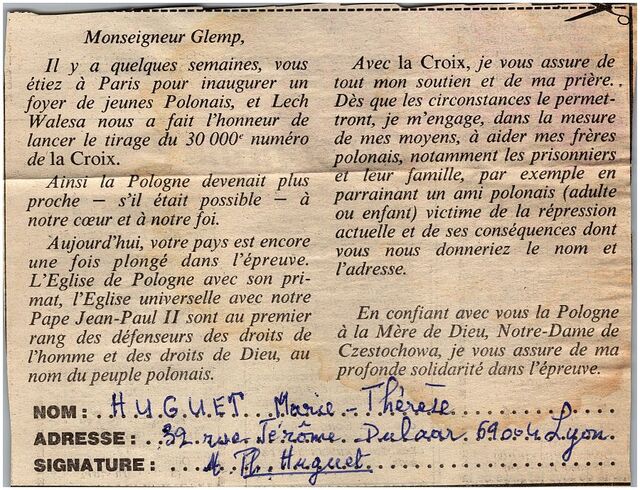 Monseigneur Glemp,
Il y a quelques semaines, vous
étiez à Paris pour inaugurer un
foyer de jeunes Polonais, et Lech
Walesa nous a fait l'honneur de
lancer le tirage du 30 000e numéro
de la Croix.
Ainsi la Pologne devenait plus
proche — s'il était possible — à
notre cœur et à notre foi.
Aujourd'hui, votre pays est encore
une fois plongé dans l'épreuve.
L'Eglise de Pologne avec son pri-
mat, l'Eglise universelle avec notre
Pape Jean-Paul II sont au premier
rang des défenseurs des droits de
l'homme et des droits de Dieu, au
nom du peuple polonais.
Avec la Croix, je vous assure de
tout mon soutien et de ma prière.
Dès que les circonstances le permet-
tront, je m'engage, dans la mesure
de mes moyens, à aider mes frères
polonais, notamment les prisonniers
et leur famille, par exemple en
parrainant un ami polonais (adulte
ou enfant) victime de la répression
actuelle et de ses conséquences dont
vous nous donneriez le nom et
l'adresse.
En confiant avec vous la Pologne
à la Mère de Dieu, Notre-Dame de
Czestochowa, je vous assure de ma
profonde solidarité dans l'épreuve.
NOM : HUGUET Marie-Thérèse
ADRESSE : 32 rue Jérôme Dulaar 69004 Lyon
SIGNATURE : M Th Huguet